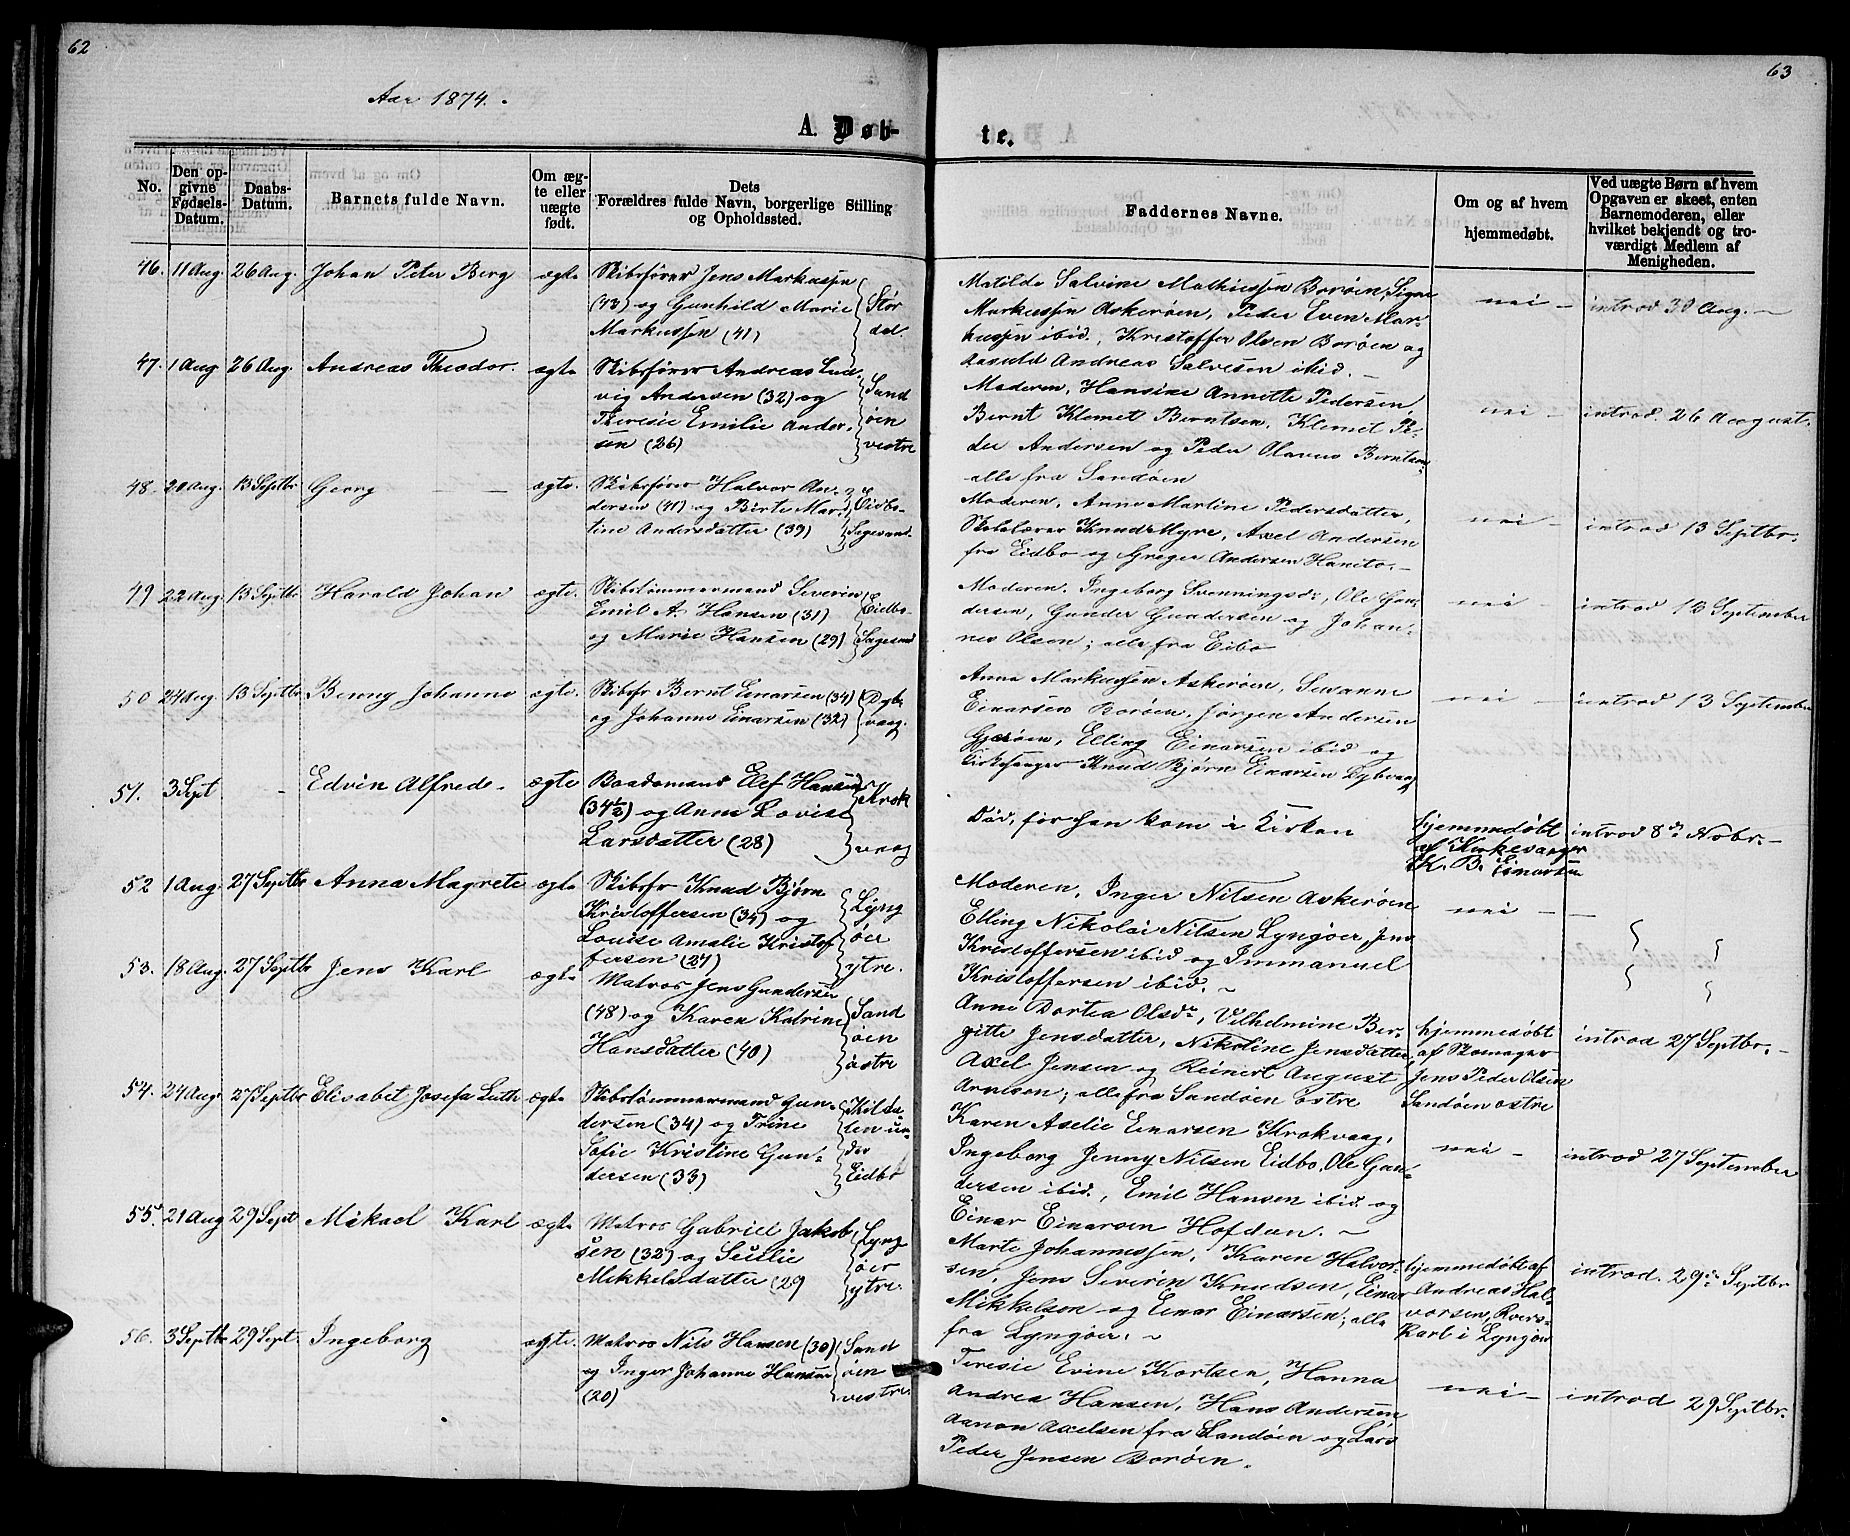 62
Aar 1874.
A. Døb-
No.
Den op-
givne
Fødsels-
Datum.
Daabs-
Datum.
Barnets fulde Navn.
Om æg-
te eller
uægte
født.
Dets
Forældres fulde Navn, borgerlige Stilling
og Opholdssted.
46. 11 Aug. 26 Aug. Johan Peter Berg ægte Skibsfører Jens Markussen
(43) og Gunhild Marie
Markussen (41)
Stør
dal.
47. 1 Aug. 26 Aug. Andreas Theodor. ægte Skibsfører Andreas Lud-
vig Andersen (32) og
Theresie Emilie Ander-
sen (26)
Sand
øen
vestre
48. 20 Aug. 13 Septbr Georg ægte. Skibsfører Halvor An-
dersen (41) og Birte Mar-
tine Andersdatter (39)
Eidbo
Sagesund.
49 22 Aug. 13 Septbr Harald Johan ægte. Skibstømmermand Severin
Emil A. Hansen (31)
og Marie Hansen (29)
Eidbo
Sagesund
50 24 Aug. 13 Septbr Benny Johanne ægte. Skibsfr Bernt Einarsen (34)
og Johanne Einarsen (32)
Dyb-
vaag.
51. 3 Sept - Edvin Alfrede - ægte Baadsmand Elef Hansen
(34½) og Anne Lovise
Larsdatter (28)
Krok
vaag
52 1 Aug. 27 Septbr Anna Magrete ægte Skibsfr Knud Bjørn
Kristoffersen (34) og
Louise Amalie Kristof
fersen (27)
Lyng
øer
ytre.
53. 18 Aug. 27 Septbr Jens Karl ægte Matros Jens Gundersen
(48) og Karen Katrine
Hansdatter (40)
Sand
øen
østre
54. 24 Aug. 27 Septbr Elisabet Josefa Luth ægte Skibstømmermand Gun-
dersen (34) og Trine
Sofie Kristine Gun-
dersen (33)
Kilsda-
len un-
der
Eidbo
55. 21 Aug 29 Sept Mikael Karl ægte Matros Gabriel Jakob-
sen (32) og Secilie
Mikkelsdatter (29
Lyng
øer
ytre.
56. 3 Septbr 29 Sept. Ingeborg ægte. Matros Nils Hansen (30)
og Inger Johanne Hansen
(20)
Sand
øen
vestre.
63
te.
Faddernes Navne.
Om og af hvem
hjemmedøbt.
Ved uægte Børn af hvem
Opgaven er skeet, enten
Barnemoderen, eller
hvilket bekjendt og tro-
værdigt Medlem af
Menigheden.
Matilde Salvine Mathiessen Borøen, Signe
Markussen Askerøen, Peder Even Mar-
kussen ibid., Kristoffer Olsen Borøen og
Aasuld Andreas Salvesen ibid. -
nei - introd 30 Aug. -
Moderen, Hansine Annette Pedersen,
Bernt Klemet Berntsen, Klemet Pe-
der Andersen og Peder Olaves Berntsen
alle fra Sandøen
nei - introd. 26 August.
Moderen, Anne Martine Pedersdatter,
Skolelærer Knud Myre, Axel Andersen
fra Eidbo og Greger Andersen Haneto. -
nei - introd 13 Septbr.
Moderen. Ingeborg Svenningsd:, Ole Gun-
dersen, Gunder Gundersen og Johan-
nes Olsen; alle fra Eibo
nei - introd 13 September
Anna Markussen Askerøen, Susanne
Einarsen Borøen, Jørgen Andersen
Gjerøen, Elling Einarsen ibid og
Kirkesanger Knud Bjørn Einarsen Dybvaag
nei - introd 13 September
Død, før han kom i Kirken
hjemmedøbt
af Kirkesanger
K. B. Einarsen
introd 8de Novbr. -
Moderen, Inger Nilsen Askerøen
Elling Nikolai Nilsen Lyngøer, Jens
Kristoffersen ibid og Immanuel
Kristoffersen ibid. -
nei -
Anne Dortea Olsdr, Vilhelmine Ber-
gitte Jensdatter, Nikoline Jensdatter,
Axel Jensen og Reinert August
Arntsen; alle fra Sandøen østre
hjemmedøbt
af Skomager
Jens Peder Olsen
Sandøen østre
introd 27 Septbr. -
Karen Aselie Einarsen Krokvaag,
Ingeborg Jenny Nilsen Eidbo, Ole Gun-
dersen ibid., Emil Hansen ibid og
Einar Einarsen Hofdan. -
nei - introd 27 September
Marte Johannessen, Karen Halvor-
sen, Jens Severin Knudsen, Einar
Mikkelsen og Einar Einarsen; alle
fra Lyngøer. -
hjemmedøbt af
Andreas Hal-
vorsen,
Karl i Lyngøer
introd. 29de Septbr
Teresie Evine Karlsen, Hanna
Andrea Hansen, Hans Andersen,
Aanon Axelsen fra Sandøen og Lars
Peder Jensen Borøen.
nei - introd 29 Septbr.